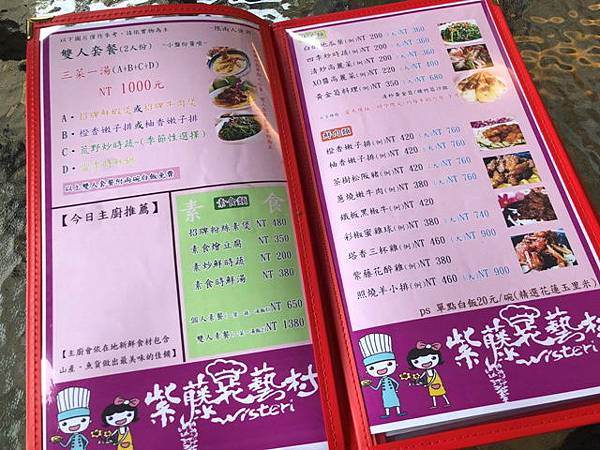 以下圖片僅供參考，請依實物為主
雙人套餐(2人份)
三菜一湯(A+B+C+D)
NT 1000元
A、招牌鮮蝦煲或招牌牛肉煲
B、橙香嫩子排或柚香嫩子排
C、荒野炒時蔬~(季節性選擇)
D、當季時鮮湯
以上雙人套餐附兩碗白飯免費
【今日主廚推薦】
【主廚會依在地新鮮食材包含
山產、魚貨做出最美味的佳餚】
素食
素食類
招牌粉絲素煲 NT 480
素食燴豆腐 NT 350
素炒鮮時蔬 NT 200
素食時鮮湯 NT 380
個人素餐 NT 650
雙人素餐 NT 1380
紫藤菓藝村
wisteri
地瓜葉(例)NT 200 (大)NT 360
四季炒時蔬(例)NT 200 (大)NT 360
清炒高麗菜(例)NT 200 (大)NT 360
XO醬高麗菜(例)NT 220 (大)NT 380
黃金菇料理(例)NT 350 (大)NT 680
鮮肉類
橙香嫩子排(例)NT 420 (大)NT 760
柚香嫩子排(例)NT 420 (大)NT 760
茶樹松阪豬(例)NT 420 (大)NT 760
蔥燒嫩牛肉(例)NT 420 (大)NT 760
鐵板黑椒牛(例)NT 420
彩椒蜜雞球(例)NT 380 (大)NT 740
塔香三杯雞(例)NT 460 (大)NT 900
紫藤花醉雞(例)NT 380
照燒羊小排(例)NT 460 (大)NT 900
ps 單點白飯20元/碗(精選花蓮玉里米)
紫藤菓藝村
wisteri